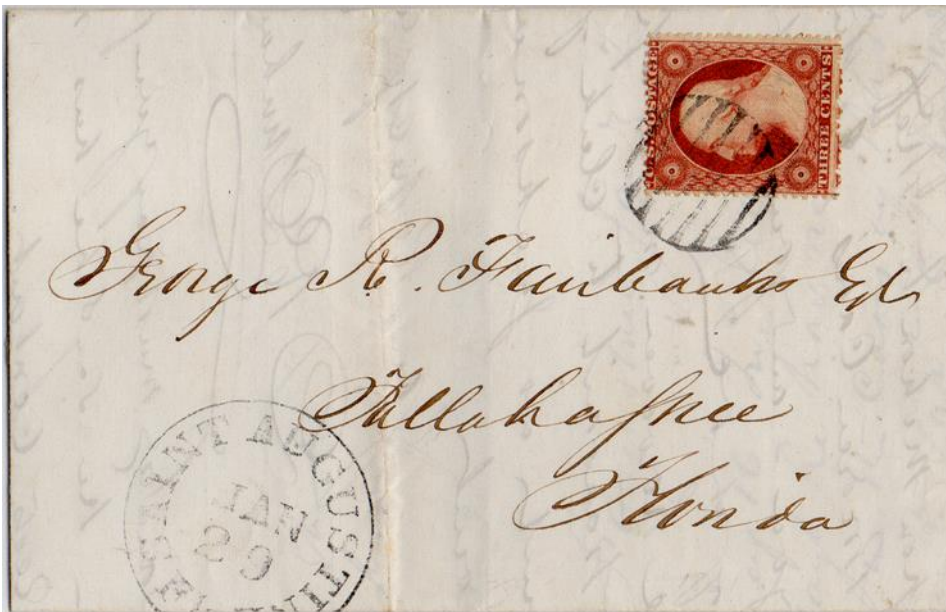 U.S. POSTAGE
THREE CENTS
George R. Fairbanks Esq
Tallahassee
Florida
SAINT AUGUSTINE
JAN
29